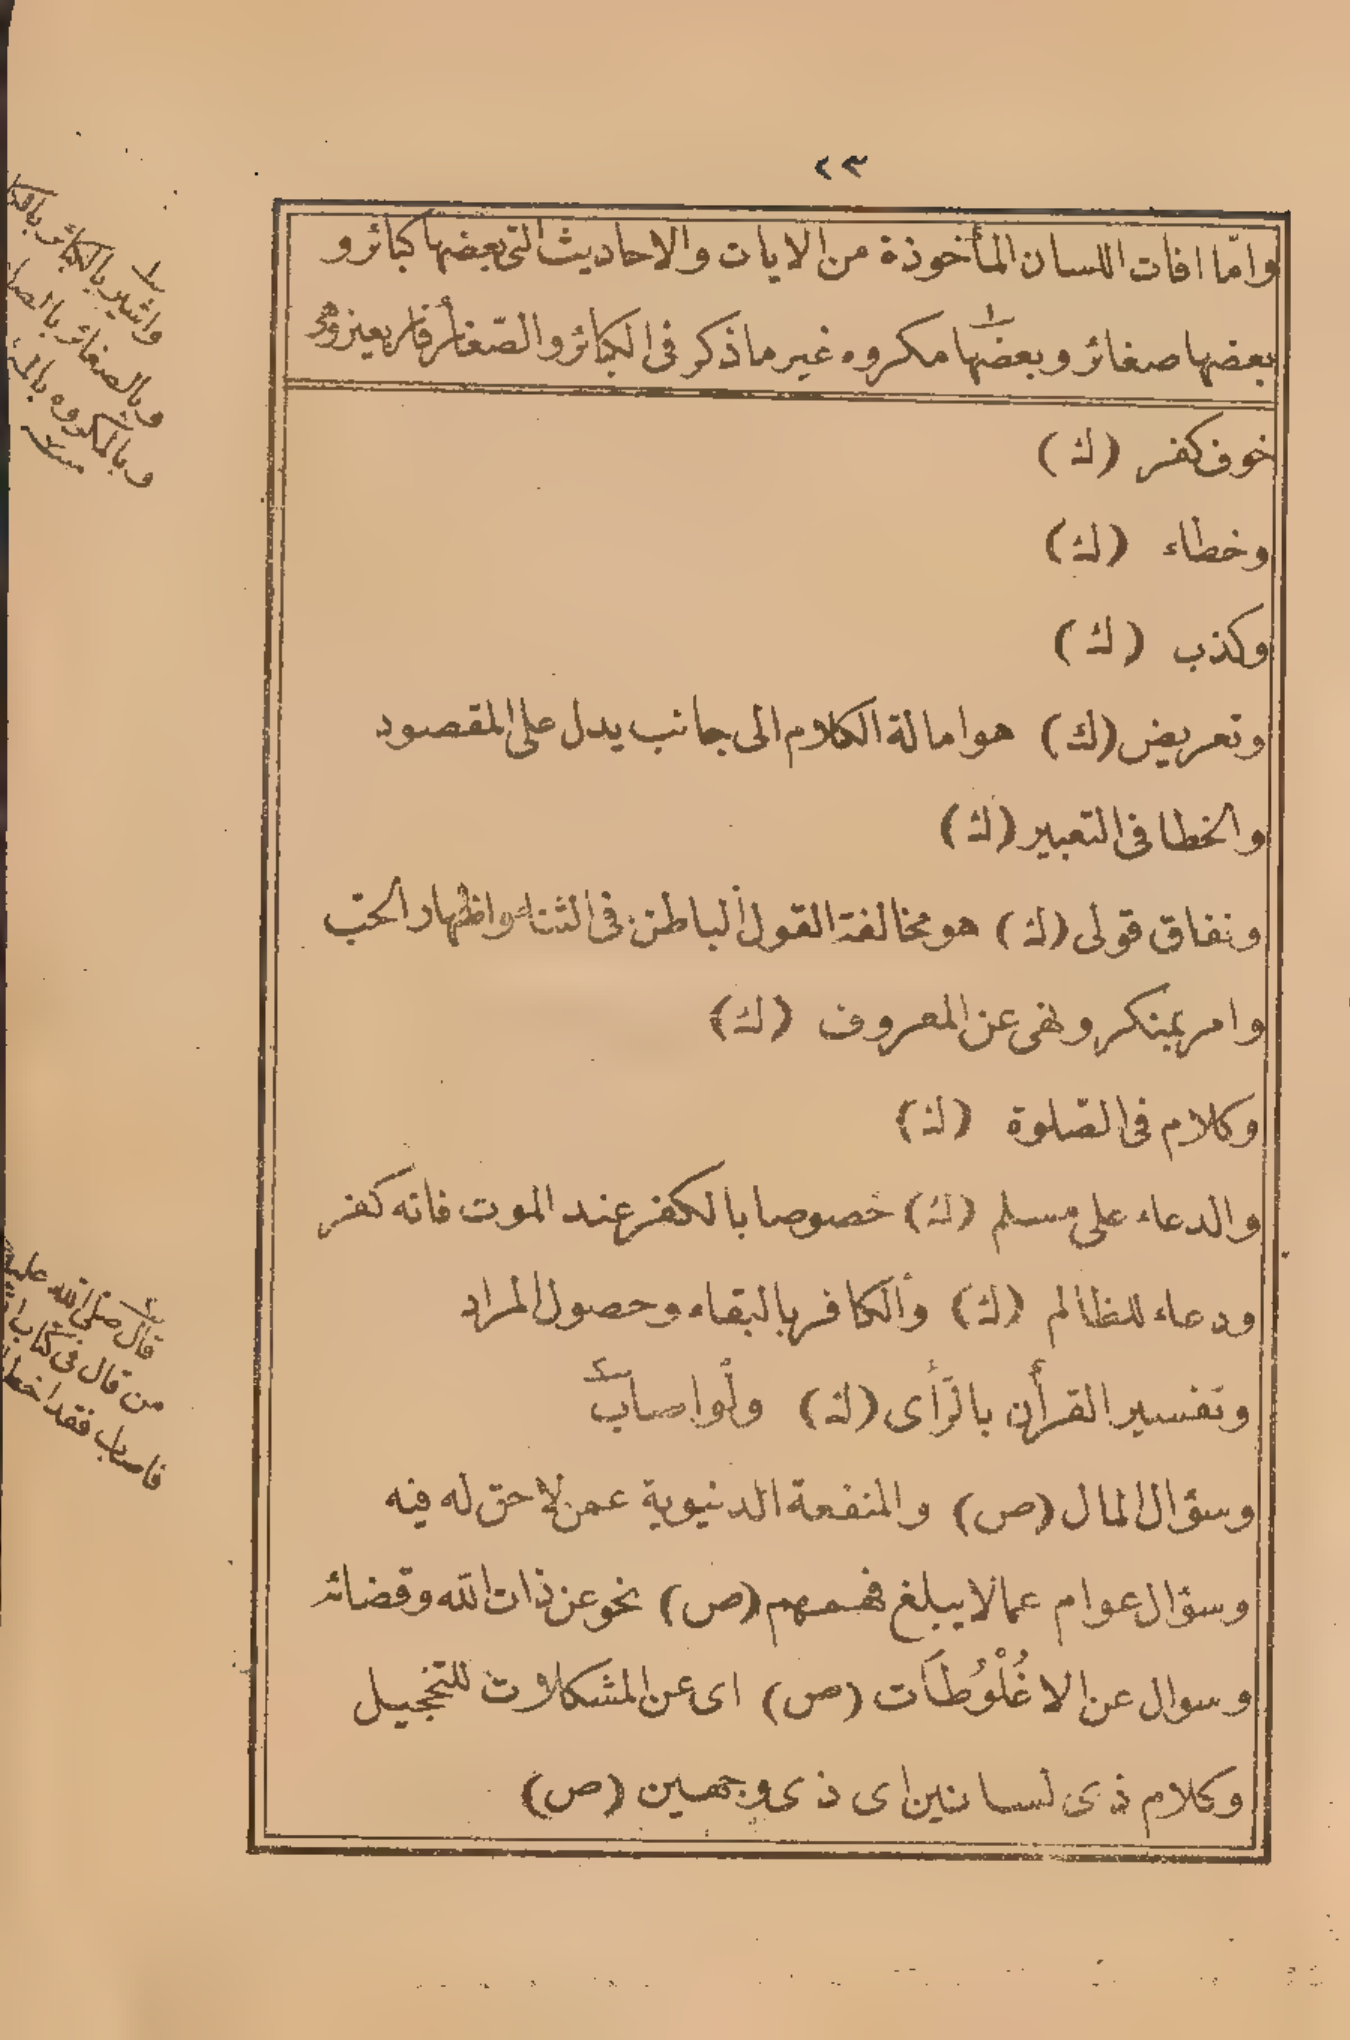 ٢٣
وامّا افات اللسان المأخوذة من الايات والاحاديث التى بعضها كبائر و
بعضها صغائر وبعضها مكروه غير ما ذكر فى الكبائر والصّغائر فاربعين وهى
خوف كفر (ك)
وخطاء (ك)
وكذب (ك)
وتعريض (ك) هو امالة الكلام الى جانب يدل على المقصود
والخطا فى التعبير (ك)
ونفاق قولى (ك) هو مخالفة القول الباطن فى الثناء واظهار الحبّ
وامر بمنكر ونهى عن المعروف (ك)
وكلام فى الصّلوة (ك)
والدعاء على مسلم (ك) خصوصا بالكفر عند الموت فانه كفر
ودعاء للظالم (ك) والكافر بالبقاء وحصول المراد
وتفسير القرأن بالرّأى (ك) ولو اصاب
وسؤال المال (ص) والمنفعة الدنيوية عمن لا حق له فيه
وسؤال عوام عما لا يبلغ فهمهم (ص) نحو عن ذات الله وقضائه
وسوال عن الاغُلْوُطَات (ص) اى عن المشكلات للتخجيل
وكلام ذى لسانين اى ذى وجهين (ص)
واشير بالكبائر بالكا
وبالصغائر بالصا
وبالمكروه بالم
قال صلى الله عليه
من قال فى كتاب ا
فاصاب فقد اخطا